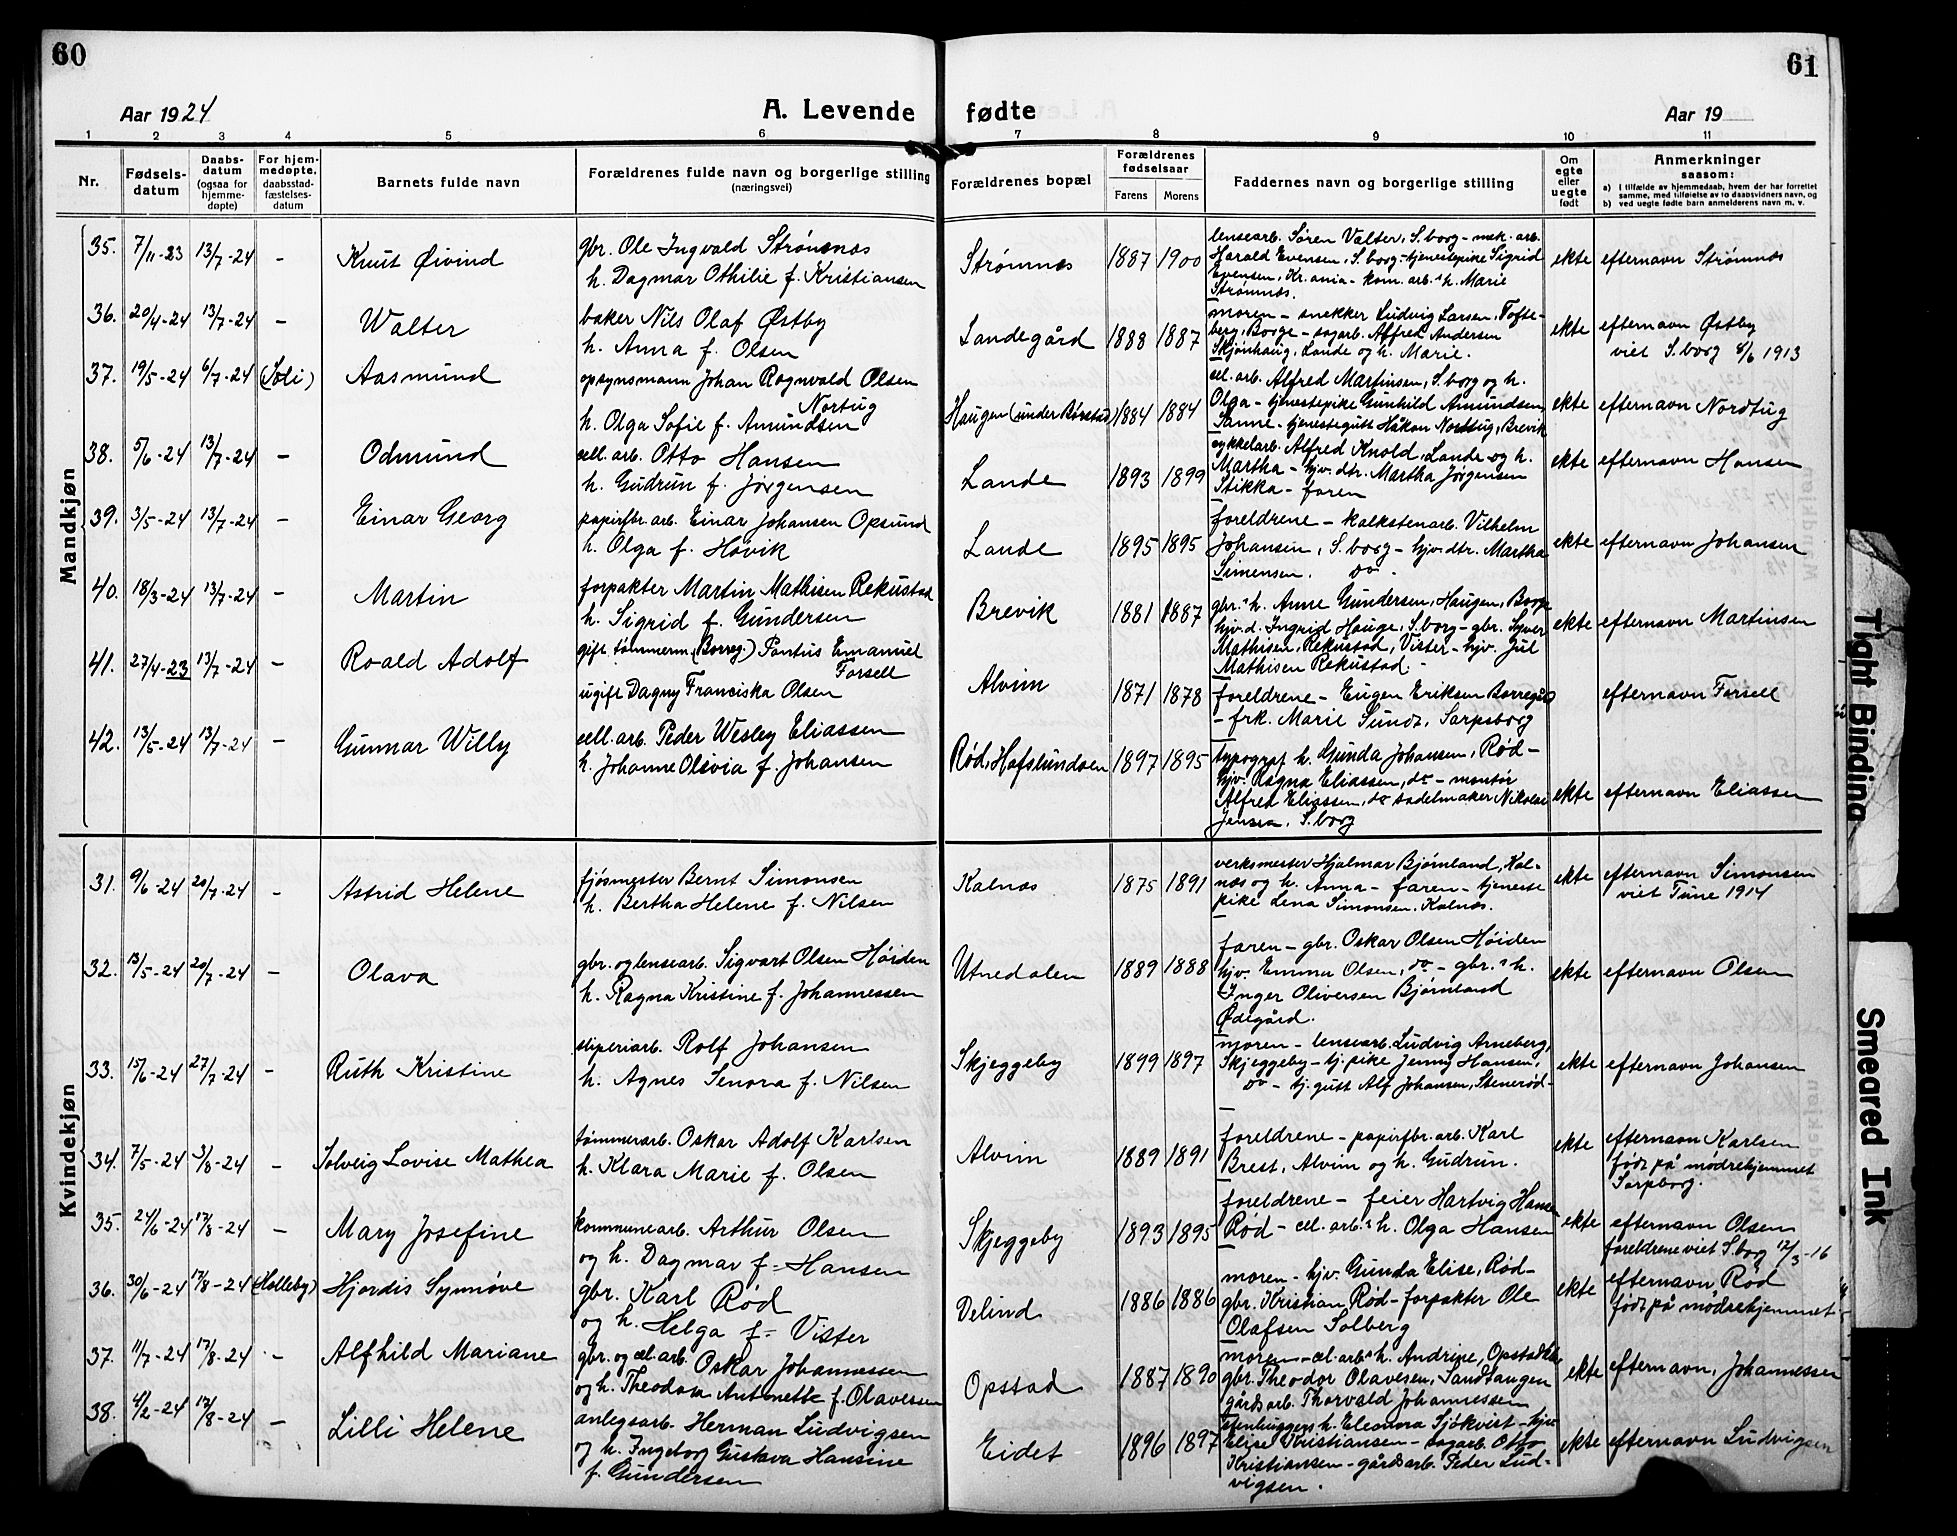 60
61
Aar 1924
A. Levende fødte
Aar 19
1 2 3 4 5 6 7 8 9 10 11
Nr.
Fødsels-
datum
Daabs-
datum
(ogsaa for
hjemme-
døpte)
For hjem-
medøpte,
daabsstad-
fæstelses-
datum
Barnets fulde navn
Forældrenes fulde navn og borgerlige stilling
(næringsvei)
Forældrenes bopæl
Forældrenes
fødselsaar
Farens Morens
Faddernes navn og borgerlige stilling
Om
egte
eller
uegte
født
Anmerkninger
saasom:
a) i tilfælde av hjemmedaab, hvem der har forrettet
samme, med tilføielse av to daabsvidners navn, og
b) ved uegte fødte barn anmelderens navn m. v.
Mandkjøn
35. 7/11-23 13/7-24 - Knut Øivind
gbr. Ole Ingvald Strømnæs
h. Dagmar Othilie f. Kristiansen
Strømnæs 1887 1900
lensearb. Søren Valter, S.borg - mek. arb.
Harald Evensen, S.borg - tjenestepike Sigrid
Evensen, Kr.ania - kom. arb. h. Marie
Strømnæs.
ekte efternavn Strømnæs
36. 20/4-24 13/7-24 - Walter
baker Nils Olaf Østby
h. Anna f. Olsen
Landegård 1888 1887
moren - snekker Ludvig Larsen, Tofte-
berg, Borge - sagarb. Alfred Andersen
Skjønhaug, Lande og h. Marie.
ekte efternavn Østby
viet S.borg 8/6 1913
37. 19/5-24 6/7-24 (Soli) Aasmund
opsynsmann Johan Ragnvald Olsen
Nortug
h. Olga Sofie f. Amundsen
Haugen (under Børstad) 1884 1884
cel. arb. Alfred Martinsen, S.borg og h.
Olga - tjenestepike Gunhild Amundsen,
Sanne - tjenestegutt Håkon Nortug, Brevik
ekte efternavn Nordtug
38. 5/6-24 13/7-24 - Odmund
cell. arb. Otto Hansen
h. Gudrun f. Jørgensen
Lande 1893 1899
sykkelarb. Alfred Knold, Lande og h.
Martha - hjv. dtr. Martha Jørgensen
Stikka - faren
ekte efternavn Hansen
39. 3/5-24 13/7-24 - Einar Georg
papirfbr. arb. Einar Johansen Opsund
h. Olga f. Høvik
Lande 1895 1895
foreldrene - kalkstenarb. Vilhelm
Johansen, S.borg - hjv. dtr. Martha
Simensen. do -
ekte efternavn Johansen
40. 18/3-24 13/7-24 - Martin
forpakter Martin Mathisen Rekustad
h. Sigrid f. Gundersen
Brevik 1881 1887
gbr.s h. Anne Gundersen, Haugen, Borge
hjv. d. Ingrid Hauge, S.borg - gbr. Syver
Mathisen, Rekustad, Vister - hjv. Jul
Mathisen Rekustad. -
ekte efternavn Martinsen
41. 27/4-23 13/7-24 - Roald Adolf
gift tømmerm. (Borreg.) Pontus Emanuel
Forsell
ugift Dagny Franciska Olsen
Alvim 1871 1878
foreldrene - Eugen Eriksen Borregård
- frk. Marie Sundt, Sarpsborg
efternavn Forsell
42. 13/5-24 13/7-24 - Gunnar Willy
cell. arb. Peder Wesley Eliassen
h. Johanne Olsvia f. Johansen
Rød, Hafslundsøen 1897 1895
typograf h. Gunda Johansen, Rød -
hjv. Ragna Eliassen, do - montør
Alfred Eliassen, do sadelmaker Nikolai
Jensen, S.borg
ekte efternavn Eliassen
Kvindekjøn
31. 9/6-24 20/7-24 - Astrid Helene
fjøsmester Bernt Simonsen
h. Bertha Helene f. Nilsen
Kalnæs 1875 1891
verksmester Hjalmar Bjørnland, Kal-
næs og h. Anna - faren - tjeneste
pike Lena Simonsen, Kalnæs.
ekte efternavn Simonsen
viet Tune 1914
32. 13/5-24 20/7-24 - Olava
gbr. og lensearb. Sigvart Olsen Høiden
h. Ragna Kristine f. Johannessen
Utnedalen 1889 1888
faren - gbr. Oskar Olsen Høiden
hjv. Emma Olsen, do - gbr.s h.
Inger Oliversen Bjørnland
Ødegård.
ekte efternavn Olsen
33. 15/6-24 27/7-24 - Ruth Kristine
sliperiarb. Rolf Johansen
h. Agnes Senora f. Nilsen
Skjeggeby 1899 1897
moren - lensearb. Ludvig Arneberg,
Skjeggeby - tj. pike Jenny Hansen,
do - tj. gutt Alf Johansen, Stenerød -
ekte efternavn Johansen
34. 7/5-24 3/8-24 - Solveig Lovise Mathea
tømmerarb. Oskar Adolf Karlsen
h. Klara Marie f. Olsen
Alvim 1889 1891
foreldrene - papirfbr. arb. Karl
Brest, Alvim og h. Gudrun.
ekte efternavn Karlsen
født på mødrehjemmet
Sarpborg.
35. 24/6-24 17/8-24 - Mary Josefine
kommunearb. Arthur Olsen
og h. Dagmar f. Hansen
Skjeggeby 1893 1895
foreldrene - feier Hartvig Hansen
Rød - cel. arb.s h. Olga Hansen
ekte efternavn Olsen
foreldrene viet S.borg 12/3-16
36. 30/6-24 17/8-24 (Holleby) Hjordis Synnøve
gbr. Karl Rød
og h. Helga f. Vister
Delind 1886 1886
moren - hjv. Gunda Elise, Rød -
gbr. Kristian Rød - forpakter Ole
Olafsen Solberg
ekte efternavn Rød
født på mødrehjemmet
37. 11/7-24 17/8-24 - Alfhild Mariane
gbr. og cel. arb. Oskar Johannessen
og h. Theodora Antonette f. Olavesen
Opstad 1887 1890
moren - cel. arb.s h. Andrine, Opstad
gbr. Theodor Olavesen, Sandtangen
gårdsarb. Thorvald Johannessen
ekte efternavn, Johannessen
38. 4/2-24 17/8-24 - Lilli Helene
anlegsarb. Herman Ludvigsen
og h. Ingeborg Gustava Hansine
f. Gundersen
Eidet 1896 1897
stenhuggers h. Eleonora Sjøkvist - hjv
Elise Kristiansen - sagarb. Otto
Kristiansen - gårdsarb. Peder Lud-
vigsen.
ekte efternavn Ludvigsen
Tight Binding
Smeared Ink